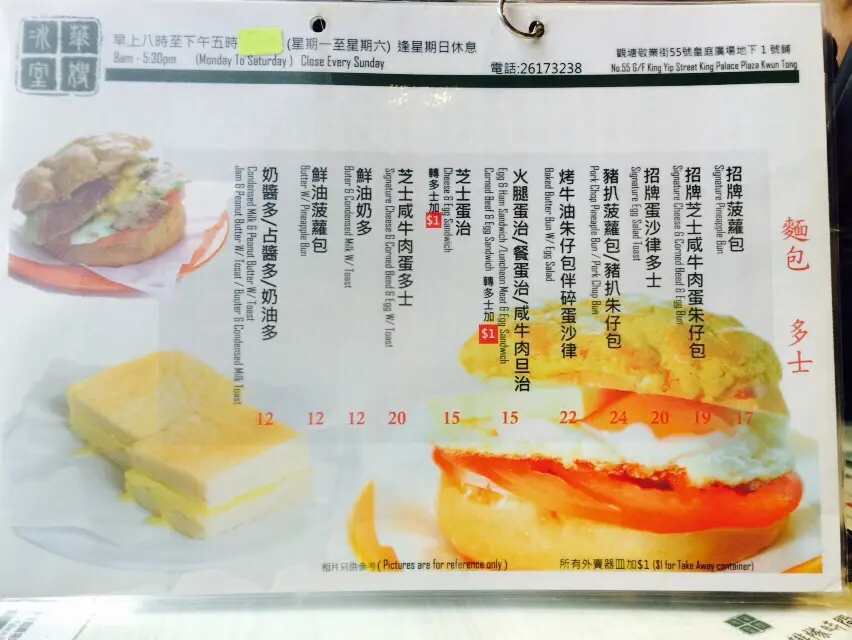 華嫂冰室
早上八時至下午五時 (星期一至星期六) 逢星期日休息
8am - 5:30pm (Monday To Saturday) Close Every Sunday
電話:26173238
觀塘敬業街55號皇庭廣場地下1號鋪
No.55 G/F King Yip Street King Palace Plaza Kwun Tong
麵包 多士
招牌菠蘿包
Signature Pineapple Bun
17
招牌芝士咸牛肉蛋朱仔包
Signature Cheese & Corned Beef & Egg Bun
19
招牌蛋沙律多士
Signature Egg Salad Toast
20
豬扒菠蘿包/豬扒朱仔包
Pork Chop Pineaple Bun / Pork Chop Bun
24
烤牛油朱仔包伴碎蛋沙律
Baked Butter Bun W/ Egg Salad
22
火腿蛋治/餐蛋治/咸牛肉旦治
Egg & Ham Sandwich / Luncheon Meat & Egg Sandwich
Corned Beef & Egg Sandwich 轉多士加$1
15
芝士蛋治
Cheese & Egg Sandwich
轉多士加$1
15
芝士咸牛肉蛋多士
Signature Cheese & Corned Beef & Egg W/ Toast
20
鮮油奶多
Buter & Condensed Milk W/ Toast
12
鮮油菠蘿包
Butter W/ Pineapple Bun
12
奶醬多/占醬多/奶油多
Condensed Milk & Peanut Butter W/ Toast
Jam & Peanut Butter W/ Tosat / Buuter & Condensed Milk Toast
12
相片只供參考 ( Pictures are for reference only )
所有外賣器皿加$1 ($1 for Take Away container)